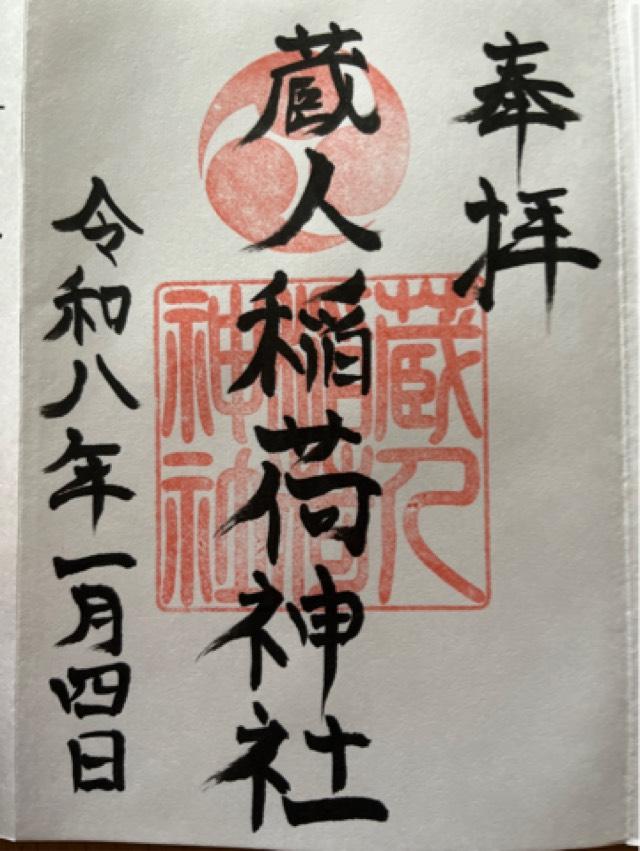 奉拝
蔵人稲荷神社
蔵人
稲荷
神社
令和八年一月四日